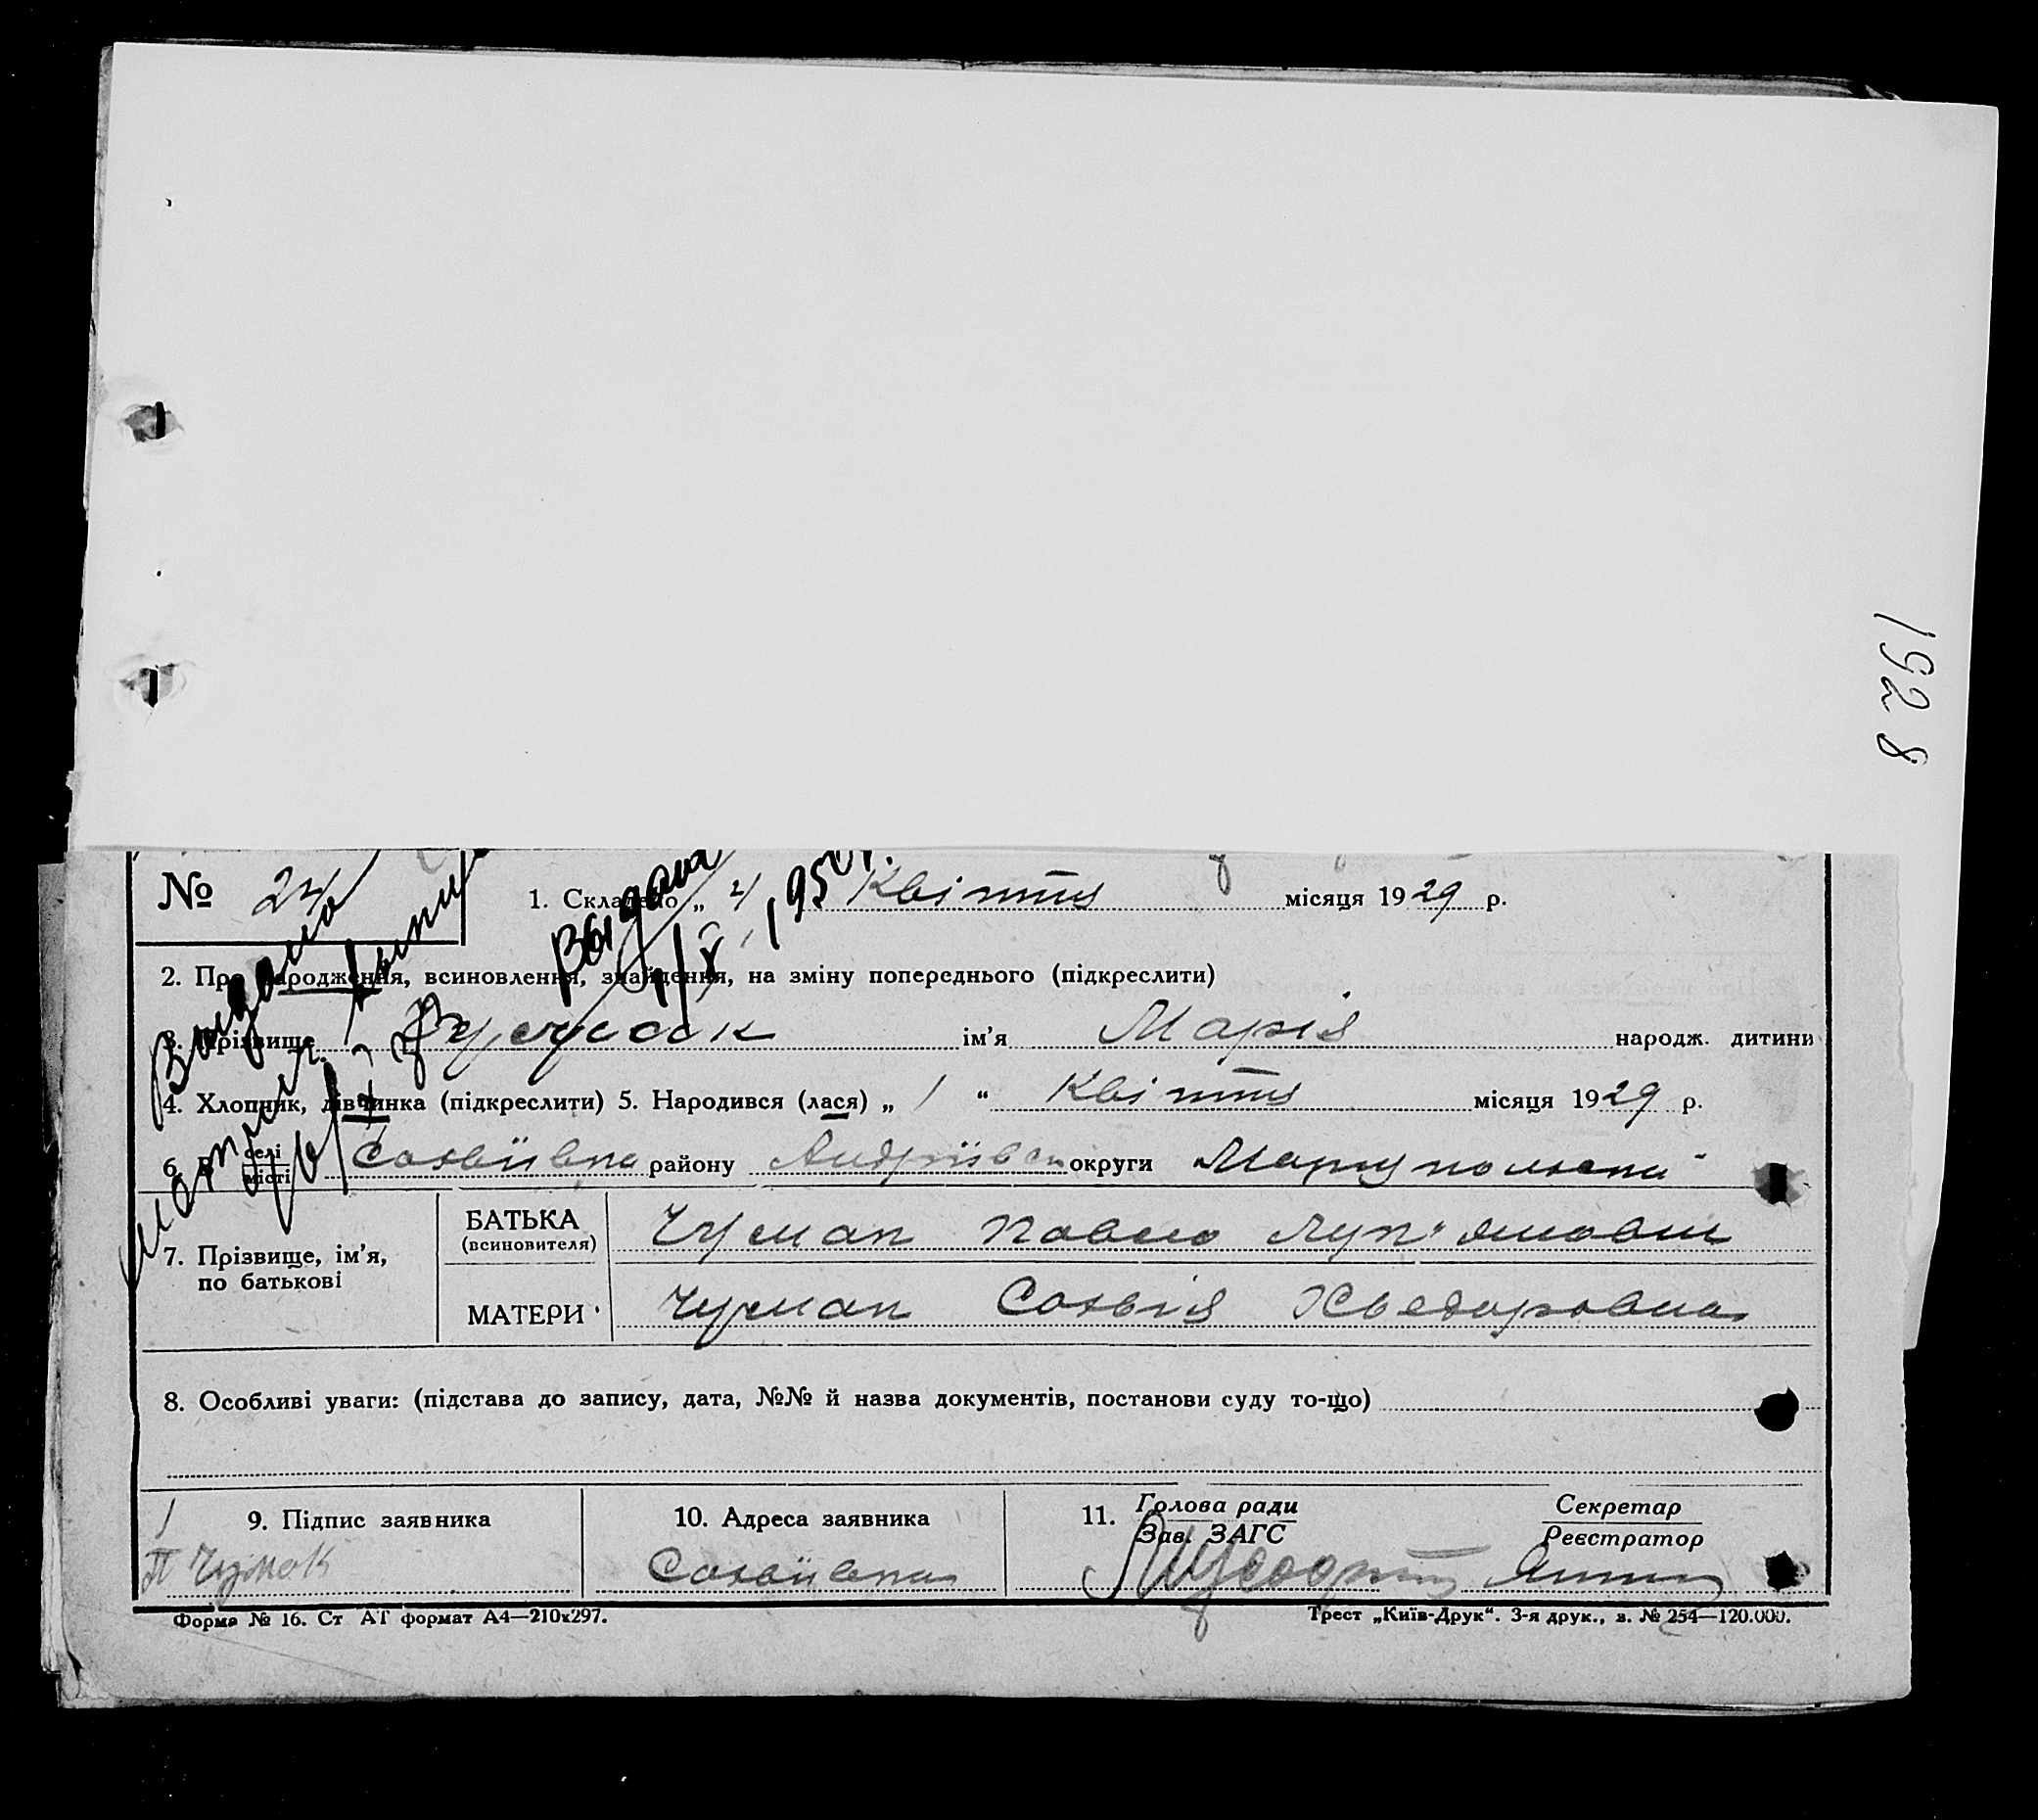 1928
№ 24
1. Складено „ 4 Квітня місяця 1929 р.
Видана
Выдана
1950 г.
2. Про народження, всиновлення, знайдення, на зміну попереднього (підкреслити)
3. Прізвище ім'я Марія народж. дитини
4. Хлопчик, дівчинка (підкреслити) 5. Народився (лася) „ 1 “ Квітня місяця 1929 р.
6. в селі місті Софіївка району Андріївськ округи Маріупольської
7. Прізвище, ім'я, по батькові
БАТЬКА (всиновителя) Чумак Павло Луп'янович
МАТЕРИ Чумак Софія Хведоровна
8. Особливі уваги: (підстава до запису, дата, №№ й назва документів, постанови суду то-що)
9. Підпис заявника
П Чумак
10. Адреса заявника
Софіївка
11. Голова ради Зав. ЗАГС
Секретар Реєстратор
Форма № 16. Ст АТ формат А4—210х297.
Трест „Київ-Друк“. 3-я друк., з. № 254—120.000.